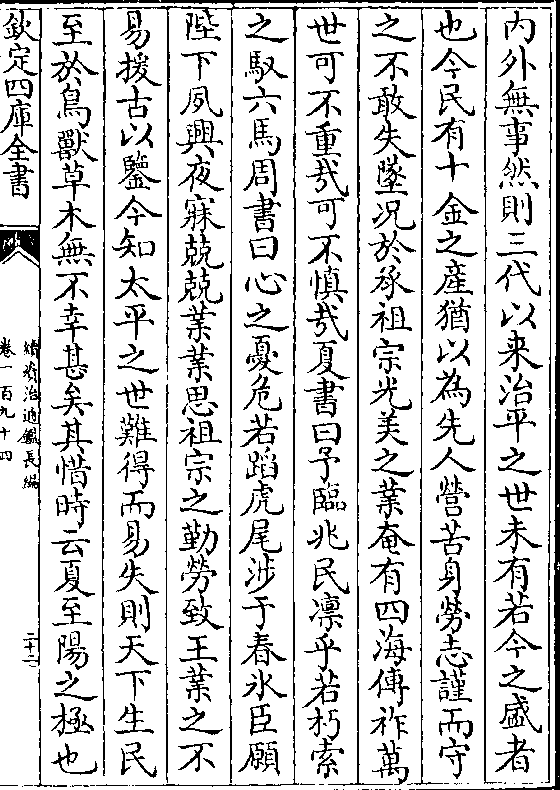 内外無事然則三代以来治平之世未有若今之盛者
也今民有十金之産猶以為先人營苦身勞志謹而守
之不敢失墜况於承祖宗光美之業奄有四海傳祚萬
世可不重哉可不慎哉夏書曰予臨兆民凛乎若朽索
之馭六馬周書曰心之憂危若蹈虎尾涉于春氷臣願
陛下夙興夜寐兢兢業業思祖宗之勤勞致王業之不
易援古以鑒今知太平之世難得而易失則天下生民
至於鳥獸草木無不幸甚矣其惜時云夏至陽之極也
欽定四庫全書
續資治通鑑長編
卷一百九十四
二十二